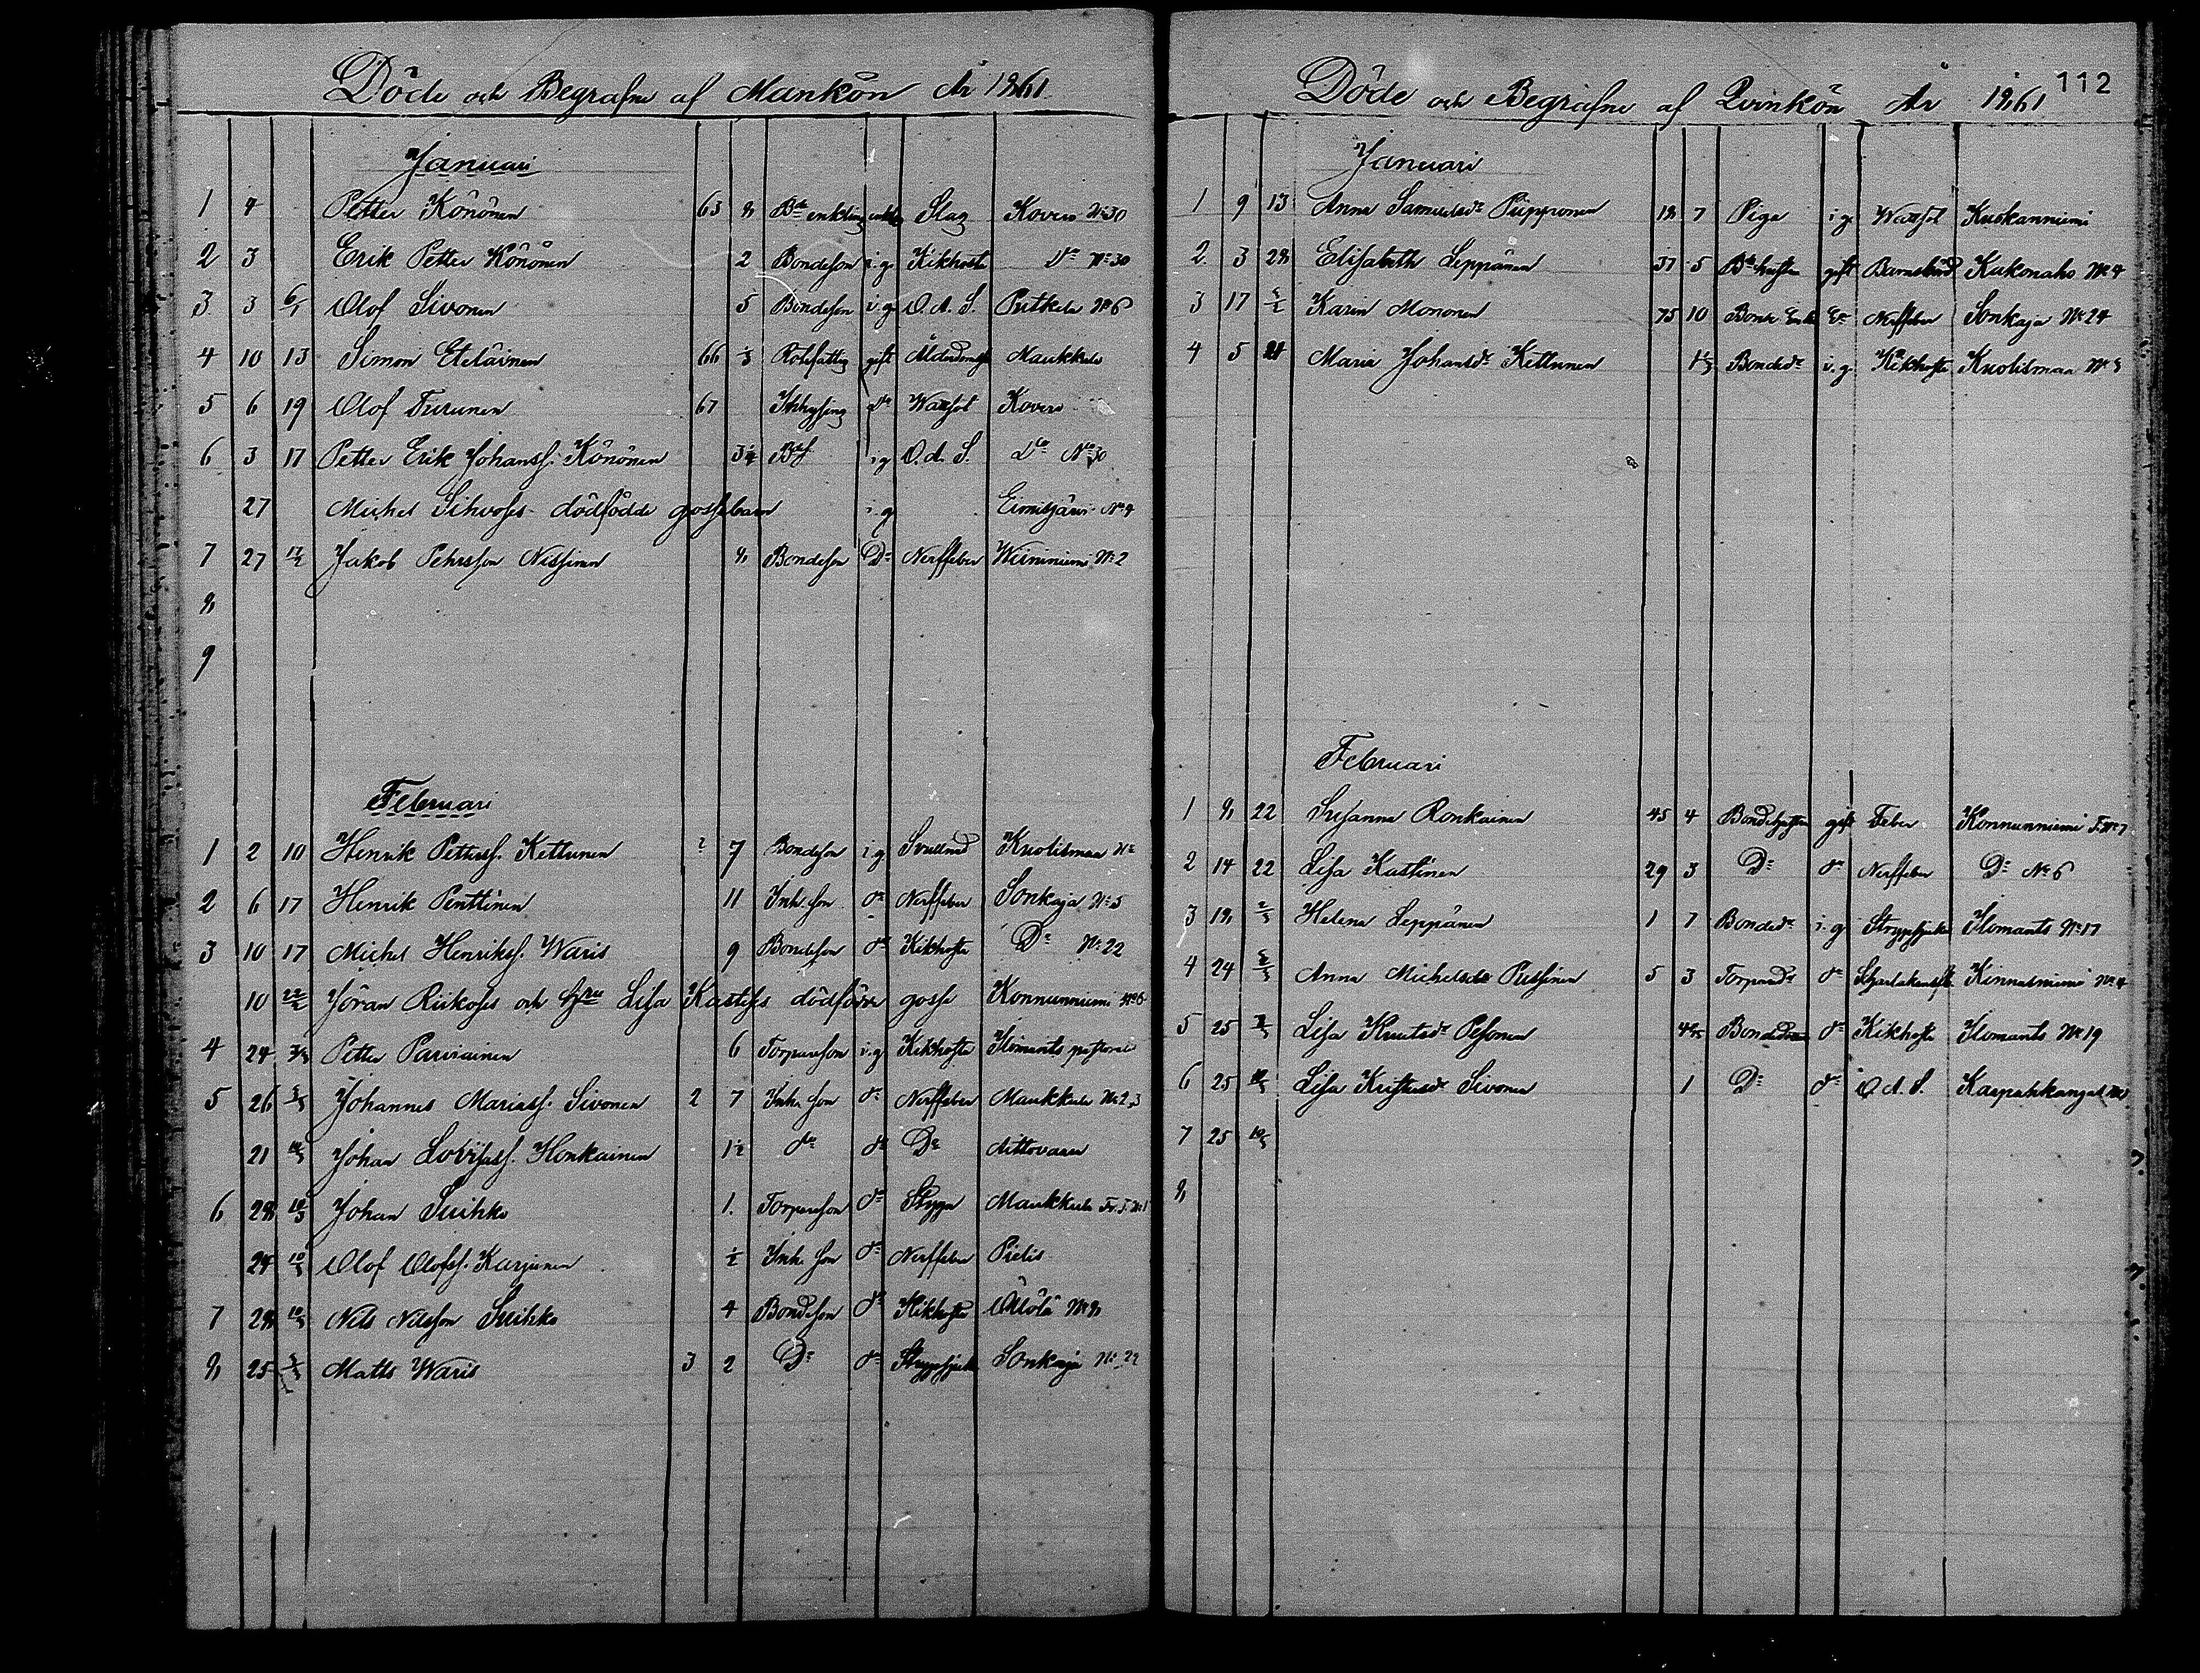 Döde och Begrafne af Mankön År 1861
Januari
1 4 Petter Könönen 63 8 Bde enkling enkling Slag Kovero No 30
2 3 Erik Petter Könönen 2 Bondeson i.g. Kikhosta Do No 30
3 3 6/1 Olof Sivonen 5 Bondeson i.g. O.A.S. Putkela No 6
4 10 13 Simon Eteläinen 66 1/3 Rotefattig gift Ålderdomsh Maukkula
5 6 19 Olof Turunen 67 Inhysing do Wattsot Kovero
6 3 17 Petter Erik Johanss. Könönen 3 1/2 i.g. O.A.S. Do No 30
27 Michel Sihvoses dödfödde gossebarn i.g. Eimisjärvi No 4
7 27 Jakob Pehrsson Nissinen 8 Bondeson Do Nerffeber Wiisiniemi No 2
8
9
Februari
1 2 10 Henrik Petterss. Kettunen 7 Bondeson i.g. Kuolismaa
2 6 17 Henrik Penttinen 11 Inh. son do Nerffeber Sonkaja No 5
3 10 17 Michel Henrikss. Waris 9 Bondeson do Kikhosta Do No 22
10 22/2 Jöran Riikoses och hustru Lisa Kastises dödfödde gosse Konnunniemi No 6
4 24 3/3 Petter Parviainen 6 Torpareson i.g. Kikhosta Ilomants pastorat
5 26 Johannes Mariass. Sivonen 2 7 Inh. son do Nerffeber Maukkula No 2,3
21 Johan Lovisass. Honkainen 1 1/2 do do Do Aittovaara
6 28 10/3 Johan Suihko 1. Torpareson do Maukkula
24 10/3 Olof Olofss. Karjunen 1/2 Inh. son do Nerffeber Pielis
7 28 10/3 Nils Nilsson Suihko 4 Bondeson do Kikhosta No 8
8 25 Matts Waris 3 2 Do do Strypsjuka Sonkaja No 22
Döde och Begrafne af Qvinkön År 1861 112
Januari
1 9 13 Anna Samuelsdr Piipponen 18 7 Piga i.g. Wattsot Kuokanniemi
2 3 28 Elisabeth Leppänen 37 5 Bde hustru gift Barnsbörd Kukonaho No 4
3 17 Karin Mononen 75 10 Bonde Enka Nerffeber Sonkaja No 24
4 5 21 Maria Johansdr Kettunen Bondedr i.g. Kikhosta Kuolismaa
Februari
1 8 22 Susanna Ronkainen 45 4 Bondehustru gift Feber Konnunniemi
2 14 22 Lisa Kastinen 29 3 Do do Nerffeber Do No 6
3 18 2/3 Helena Leppänen 1 7 Bondedr i.g. Strypsjuka Ilomants No 17
4 24 Anna Michelsdr Pussinen 5 3 Torparedr do Skarlakansf. Kinnasniemi No 4
5 25 Lisa Knutsdr Pesonen Bondedr do Kikhosta Ilomants No 19
6 25 Lisa Kristersdr Sivonen 1 Do do O.A.S. Karpakkangas
7 25 10/3
8